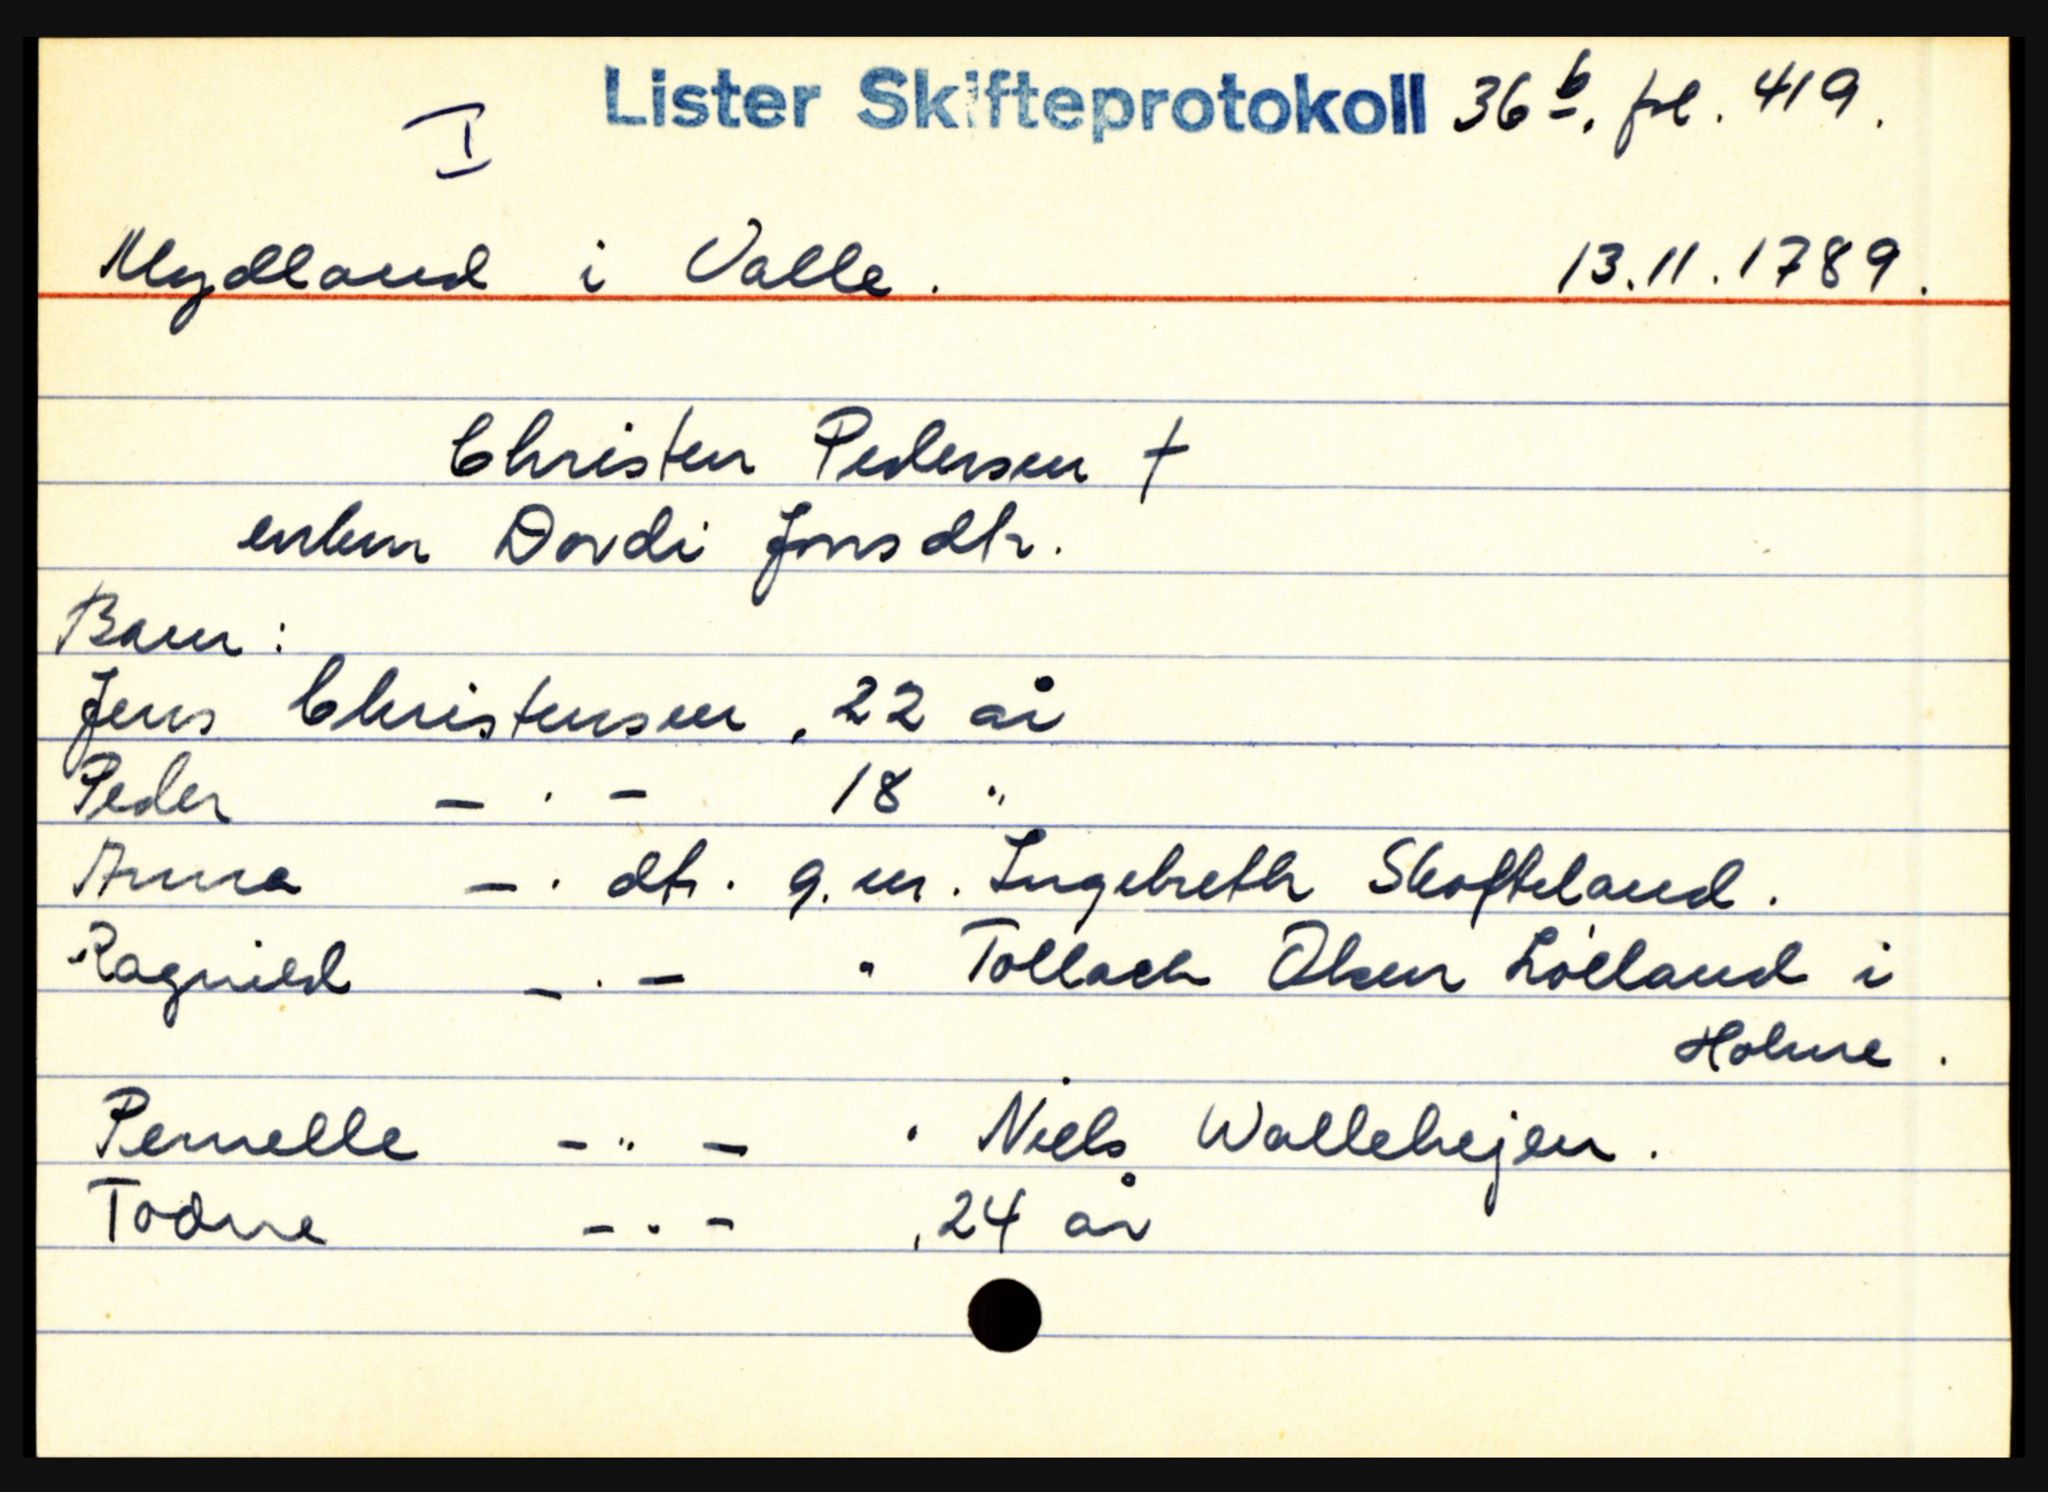 Lister Skifteprotokoll 36 b. fol. 419.
I
Mydland i Valle. 13.11.1789.
Christen Pedersen †
enken Dordi Jonsdtr.
Barn:
Jens Christensen, 22 år
Peder — . — 18 "
Anna — . dtr. g.m. Ingebreth Skofteland.
Ragnild — . — " Tollach Olsen Lölland i
Holme.
Pernelle — " — " Niels Wallehejen.
Todne — . — , 24 år